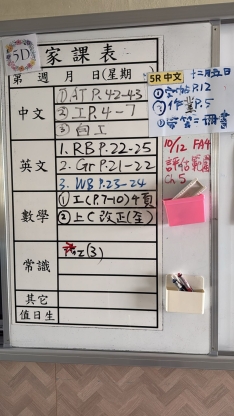 5D
家課表
第 週 月 日(星期 )
中文
① AT P.42-43
② 工P.4-7
③
英文
1. RB P.22-25
2. Gr P.21-22
3. WB P.23-24
數學
① 工(P.7-10)4頁
② 上C 改正(全)
常識
(3)
其它
值日生
5R 中文
十二月五日
① P.12
② 作業P.5
③
10/12 FA4
評估範圍
Ch.5